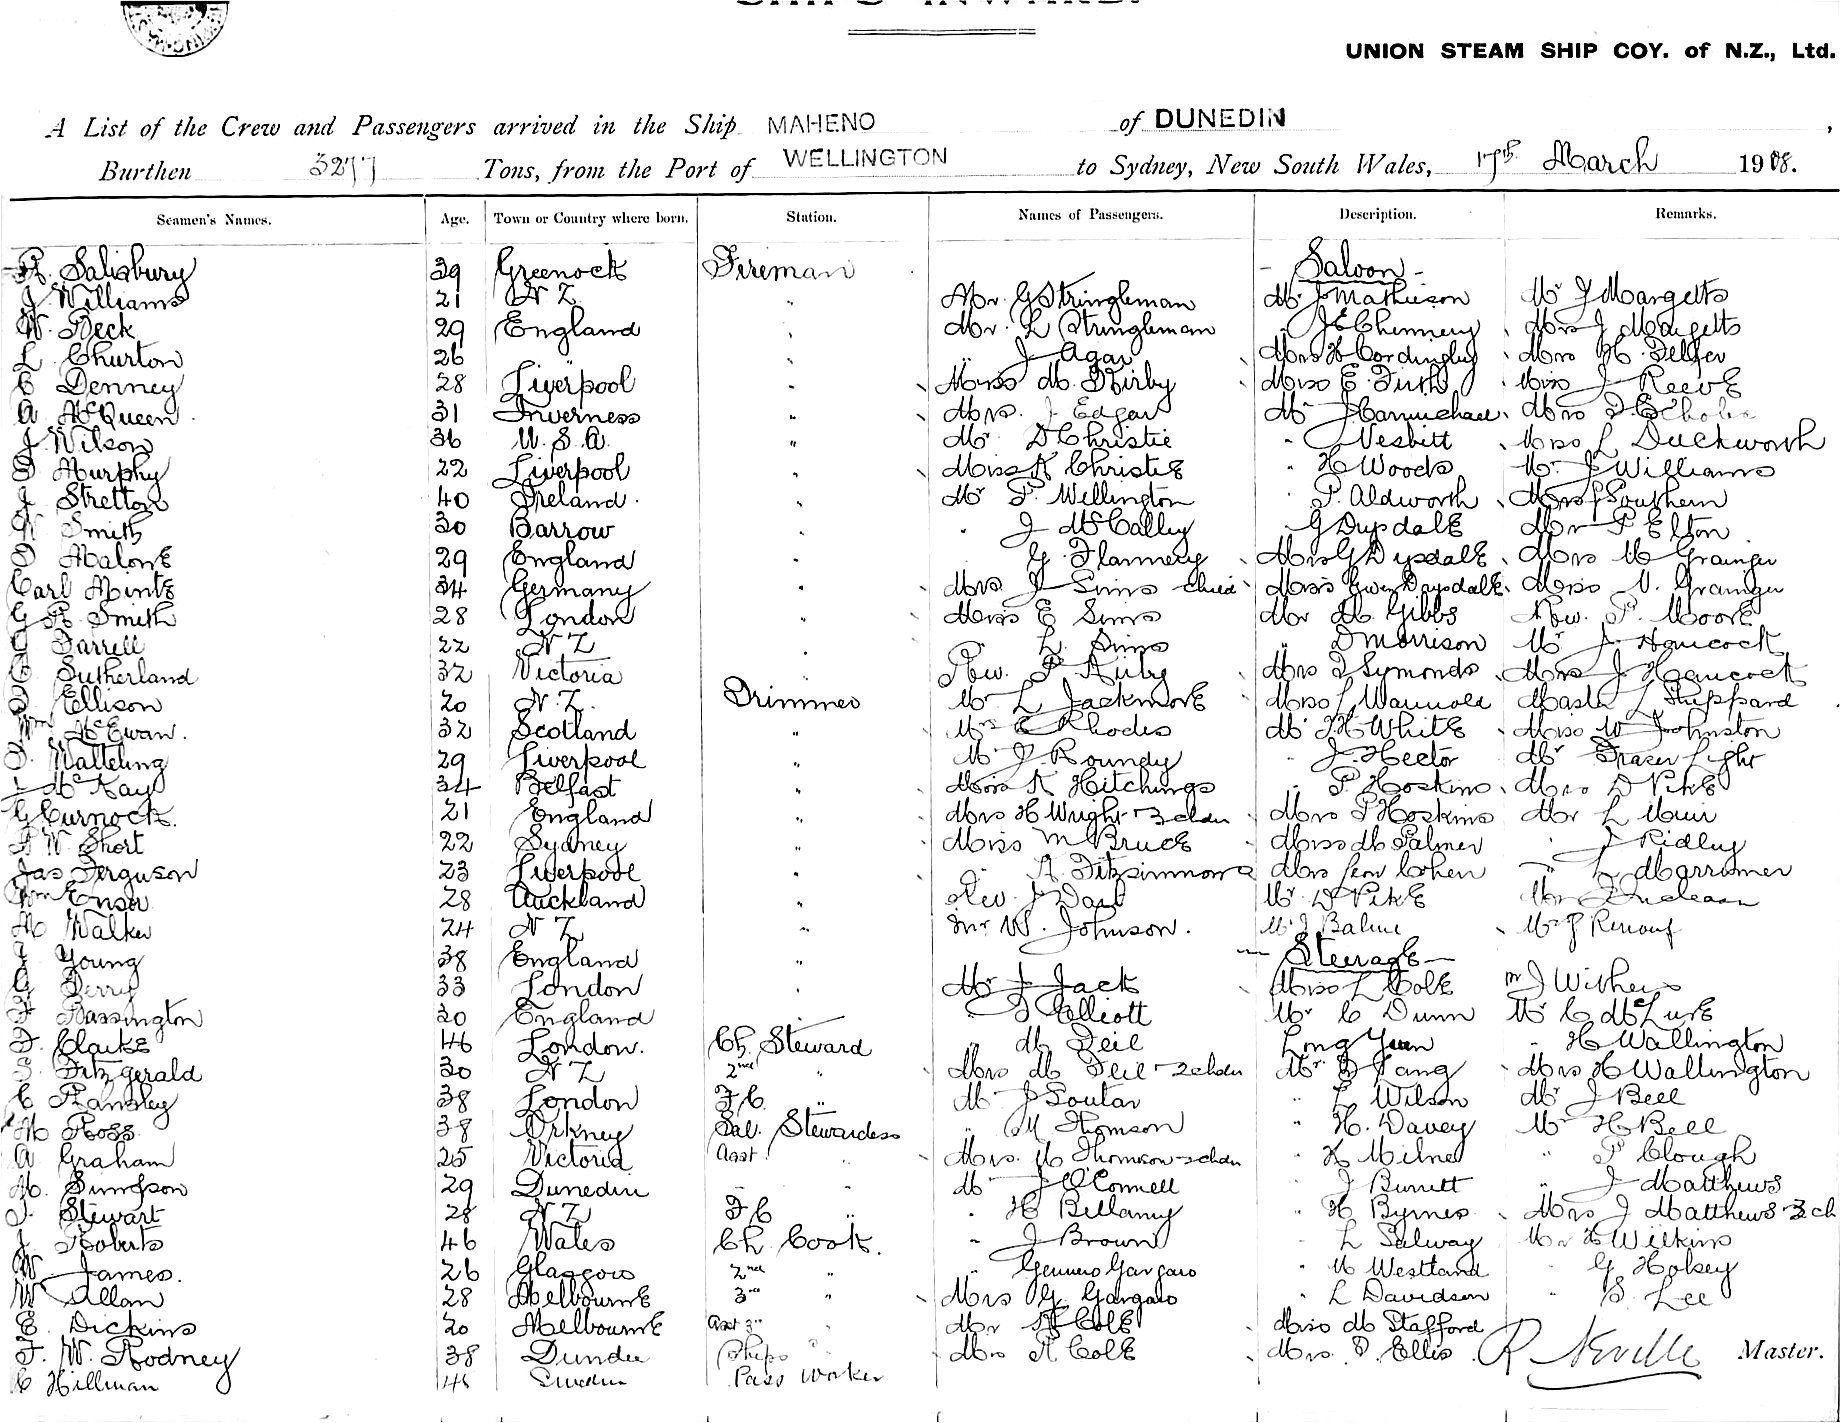 UNION STEAM SHIP COY. of N.Z., Ltd.
A List of the Crew and Passengers arrived in the Ship MAHENO of DUNEDIN,
Burthen 3277 Tons, from the Port of WELLINGTON to Sydney, New South Wales, 17th March 1908.
Seamen's Names. Age. Town or Country where born. Station. Names of Passengers. Description. Remarks.
R. Salisbury 39 Greenock Fireman - Saloon -
J Williams 21 N Z " Mr. G Stringleman Mr J Mathieson Mr J Margetts
W. Beck 29 England " Mr. L Stringleman " J E Chennery Mrs J Margetts
L Churton 26 " " " J Agar Mrs H Cordingley Mrs H. Telfer
C Denney 28 Liverpool " Miss M. Kirby Miss E. Firth Miss J Reeve
A McQueen 31 Inverness " Mrs. J Edgar Mr J Carmichael Mrs
J Wilson 36 U. S. A. " Mr D Christie " Nesbitt Miss L Duckworth
D Murphy 22 Liverpool " Miss K Christie " H Woods Mr J Williams
J Stretton 40 Ireland. " Mr P. Wellington " P. Aldworth Miss J Southern
N Smith 30 Barrow " " J McCalley " G Drysdale Mr P Elton
D Malone 29 England " " G. Flannery Mrs G Drysdale Mrs M Grainger
Carl Mintz 34 Germany " Mrs. J Sims child Miss Gwen Drysdale Miss V. Grainger
G R Smith 28 London " Miss E Sims Mr M. Gibbs Rev. P. Moore
G Farrell 22 N Z " " L. Sims " D Morrison Mr J. Hancock
C Sutherland 32 Victoria " Rev. P Kirby Mrs J Symonds Mrs J Hancock
D Ellison 20 N. Z. Trimmer Mr L Jackmore Miss L Master L Sheppard
Wm McEwan. 32 Scotland " Mrs E Rhodes Mr J H White Miss W Johnston
D. Watteling 29 Liverpool " Mr J Roundy " J. Hector Mr Fraser Light
J McKay 34 Belfast " Miss K Hitchings " P. Hoskins Mrs D Pike
G Curnock. 21 England " Mrs H Wright - 3 chdn Mrs P Hoskins Mr L Muir
R W Short 22 Sydney " Miss M Bruce Miss M Palmer " J Ridley
Jas Ferguson 23 Liverpool " " A. Fitzsimmons Mrs Leon Cohen " L Marriner
Wm Ensor 28 Auckland " Rev. J Mr D Pike Mr
M Walker 24 N Z " Mr W. Johnson. Mr J Mr J Renouf
J Young 38 England " — Steerage —
G Berry 33 London " Mr J Jack Miss L Cole Mr J Withers
F Bassington 30 England " " D Elliott Mr C Dunn Mr C McLure
F. Clarke 46 London. Ch. Steward " M Teil Long Yuen " H Wallington
S. Fitzgerald 30 N Z 2nd " Mrs M Teil - 2 chdn Mr D Tang Mrs H Wallington
C Ransley 38 London F C " Mr J Soutar " L Wilson Mr J Bell
M Ross 38 Orkney Sal. Stewardess " M Thomson " H. Davey Mr H Bell
A Graham 25 Victoria Asst. " Mrs. M Thomson - 2 chdn " K Milne " P Clough
M. Simpson 29 Dunedin " " Mr J O'Connell " J Burrett " J Matthews
J. Stewart 28 N Z F C " " H Bellamy " H Byrnes Mrs J Matthews 3 ch
J. Roberts 46 Wales Ch. Cook. " J Brown " L Salway Mr H Wilkins
W James. 26 Glasgow 2nd " Gennero Gargaro " M Westland " G Hokey
W Allan 28 Melbourne 3rd " Mrs G. Gargaro " L Davidson " S. Lee
E. Dickins 20 Melbourne Asst 3rd " Mr R Cole Miss M Stafford
F. W. Rodney 38 Dundee Ships " Mrs R Cole Mrs. D. Ellis R Neville Master.
C Hillman Sweden Pass Worker